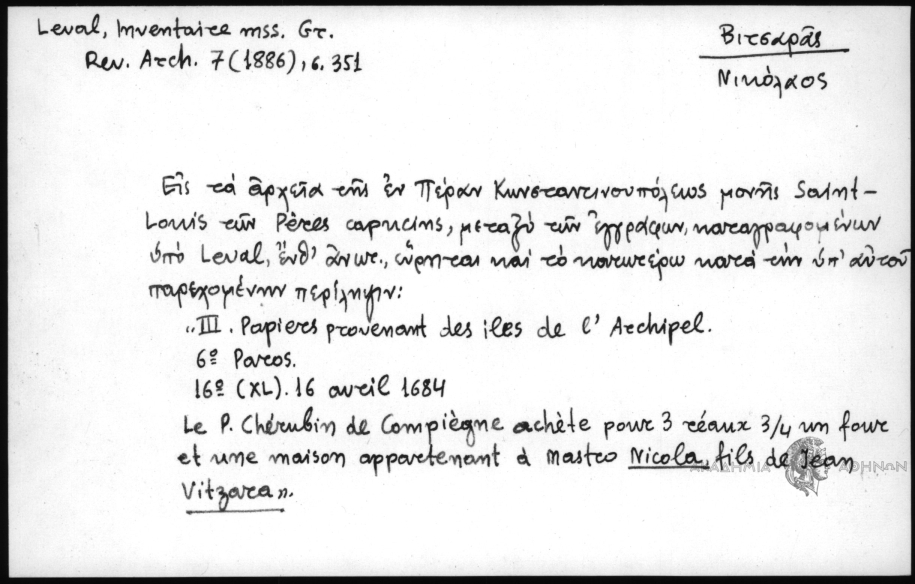 Leval, Inventaire mss. Gr.
Rev. Arch. 7 (1886), σ. 351
Βιτσαρᾶς
Νικόλαος
Εἰς τά ἀρχεῖα τῆς ἐν Πέραν Κωνσταντινουπόλεως μονῆς Saint-
Louis τῶν Pères capucins, μεταξύ τῶν ἐγγράφων, καταγραφομένων
ὑπό Leval, ἔνθ' ἀνωτ., εὕρηται καί τό κατωτέρω κατά τήν ὑπ' αὐτοῦ
παρεχομένην περίληψιν:
„III. Papiers provenant des iles de l'Archipel.
6º Paros.
16º (XL). 16 avril 1684
Le P. Chérubin de Compiègne achète pour 3 réaux 3/4 un four
et une maison appartenant à Mastro Nicola, fils de Jean
Vitzara".
ΑΚΑΔΗΜΙΑ ΑΘΗΝΩΝ